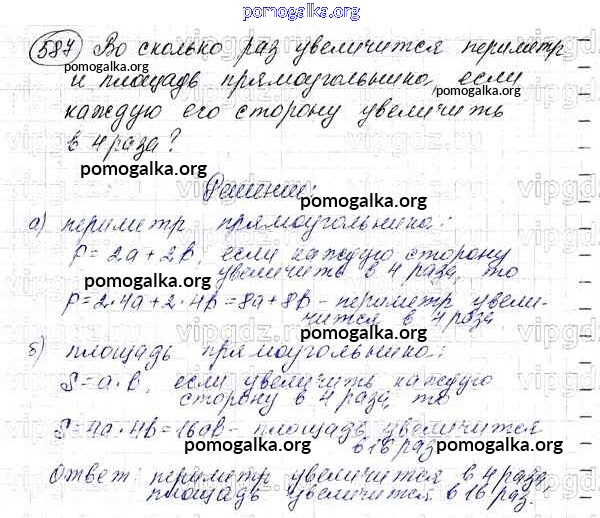 pomogalka.org
587 Во сколько раз увеличится периметр
pomogalka.org pomogalka.org
и площадь прямоугольника, если
каждую его сторону увеличить
в 4 раза?
pomogalka.org
Решение:
pomogalka.org
а) периметр прямоугольника:
P = 2a + 2b, если каждую сторону
увеличить в 4 раза, то
pomogalka.org
P = 2·4a + 2·4b = 8a + 8b - периметр увели-
чится в 4 раза
pomogalka.org
б) площадь прямоугольника:
S = a·b, если увеличить каждую
сторону в 4 раза, то
pomogalka.org
S = 4a·4b = 16ab - площадь увеличится
в 16 раз
pomogalka.org pomogalka.org
Ответ: периметр увеличится в 4 раза,
площадь увеличится в 16 раз.
vipgdz.ru